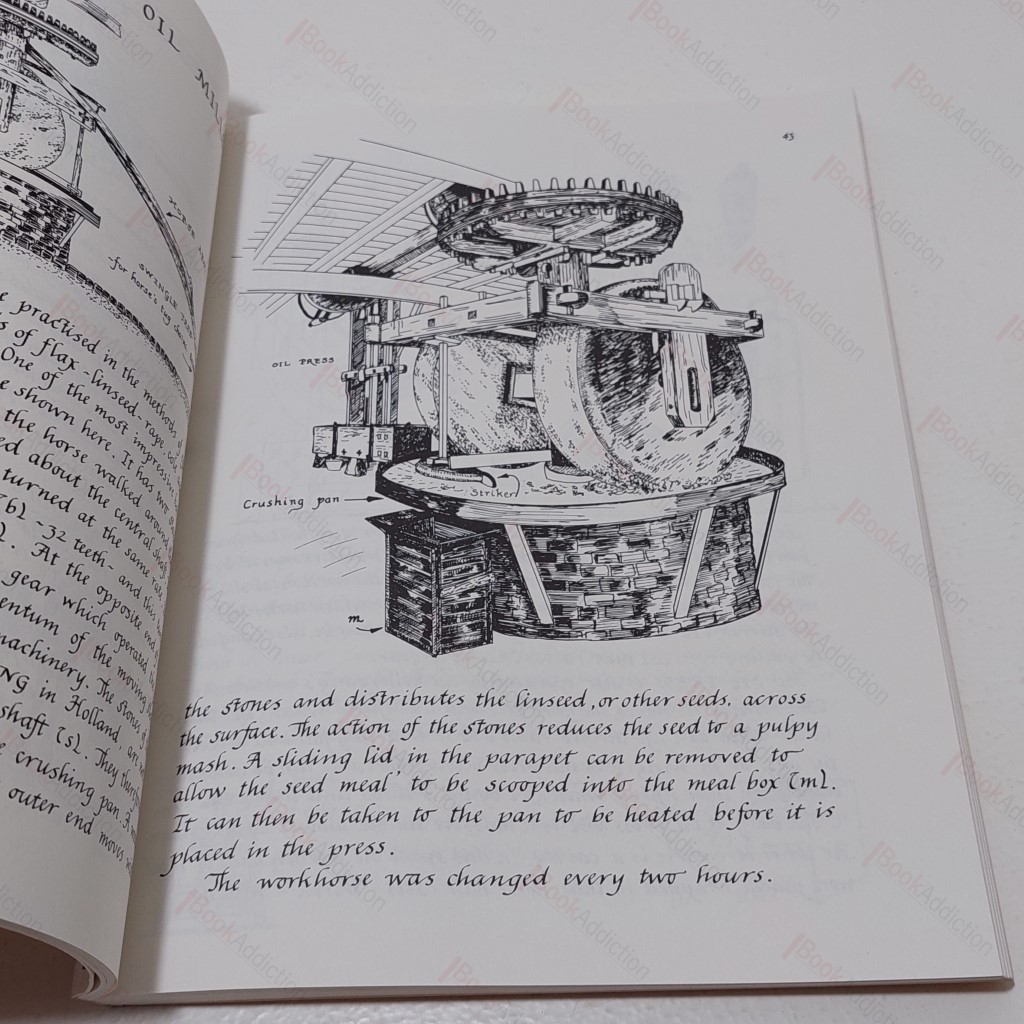 OIL
HORSE
SWINGLE TREE
for horse's tug chains
practised in the methods of
of flax-linseed-rape
One of the most impressive
shown here. It has not
the horse walked around
about the central shaft
turned at the same rate
[b] -32 teeth- and this
. At the opposite end
gear which operated
momentum of the moving
machinery. The stones of
in Holland, are
shaft [s]. They
crushing pan. A
outer end moves
43
OIL PRESS
Crushing pan
Striker
m
the stones and distributes the linseed, or other seeds, across
the surface. The action of the stones reduces the seed to a pulpy
mash. A sliding lid in the parapet can be removed to
allow the 'seed meal' to be scooped into the meal box [m].
It can then be taken to the pan to be heated before it is
placed in the press.
The workhorse was changed every two hours.
BookAddiction